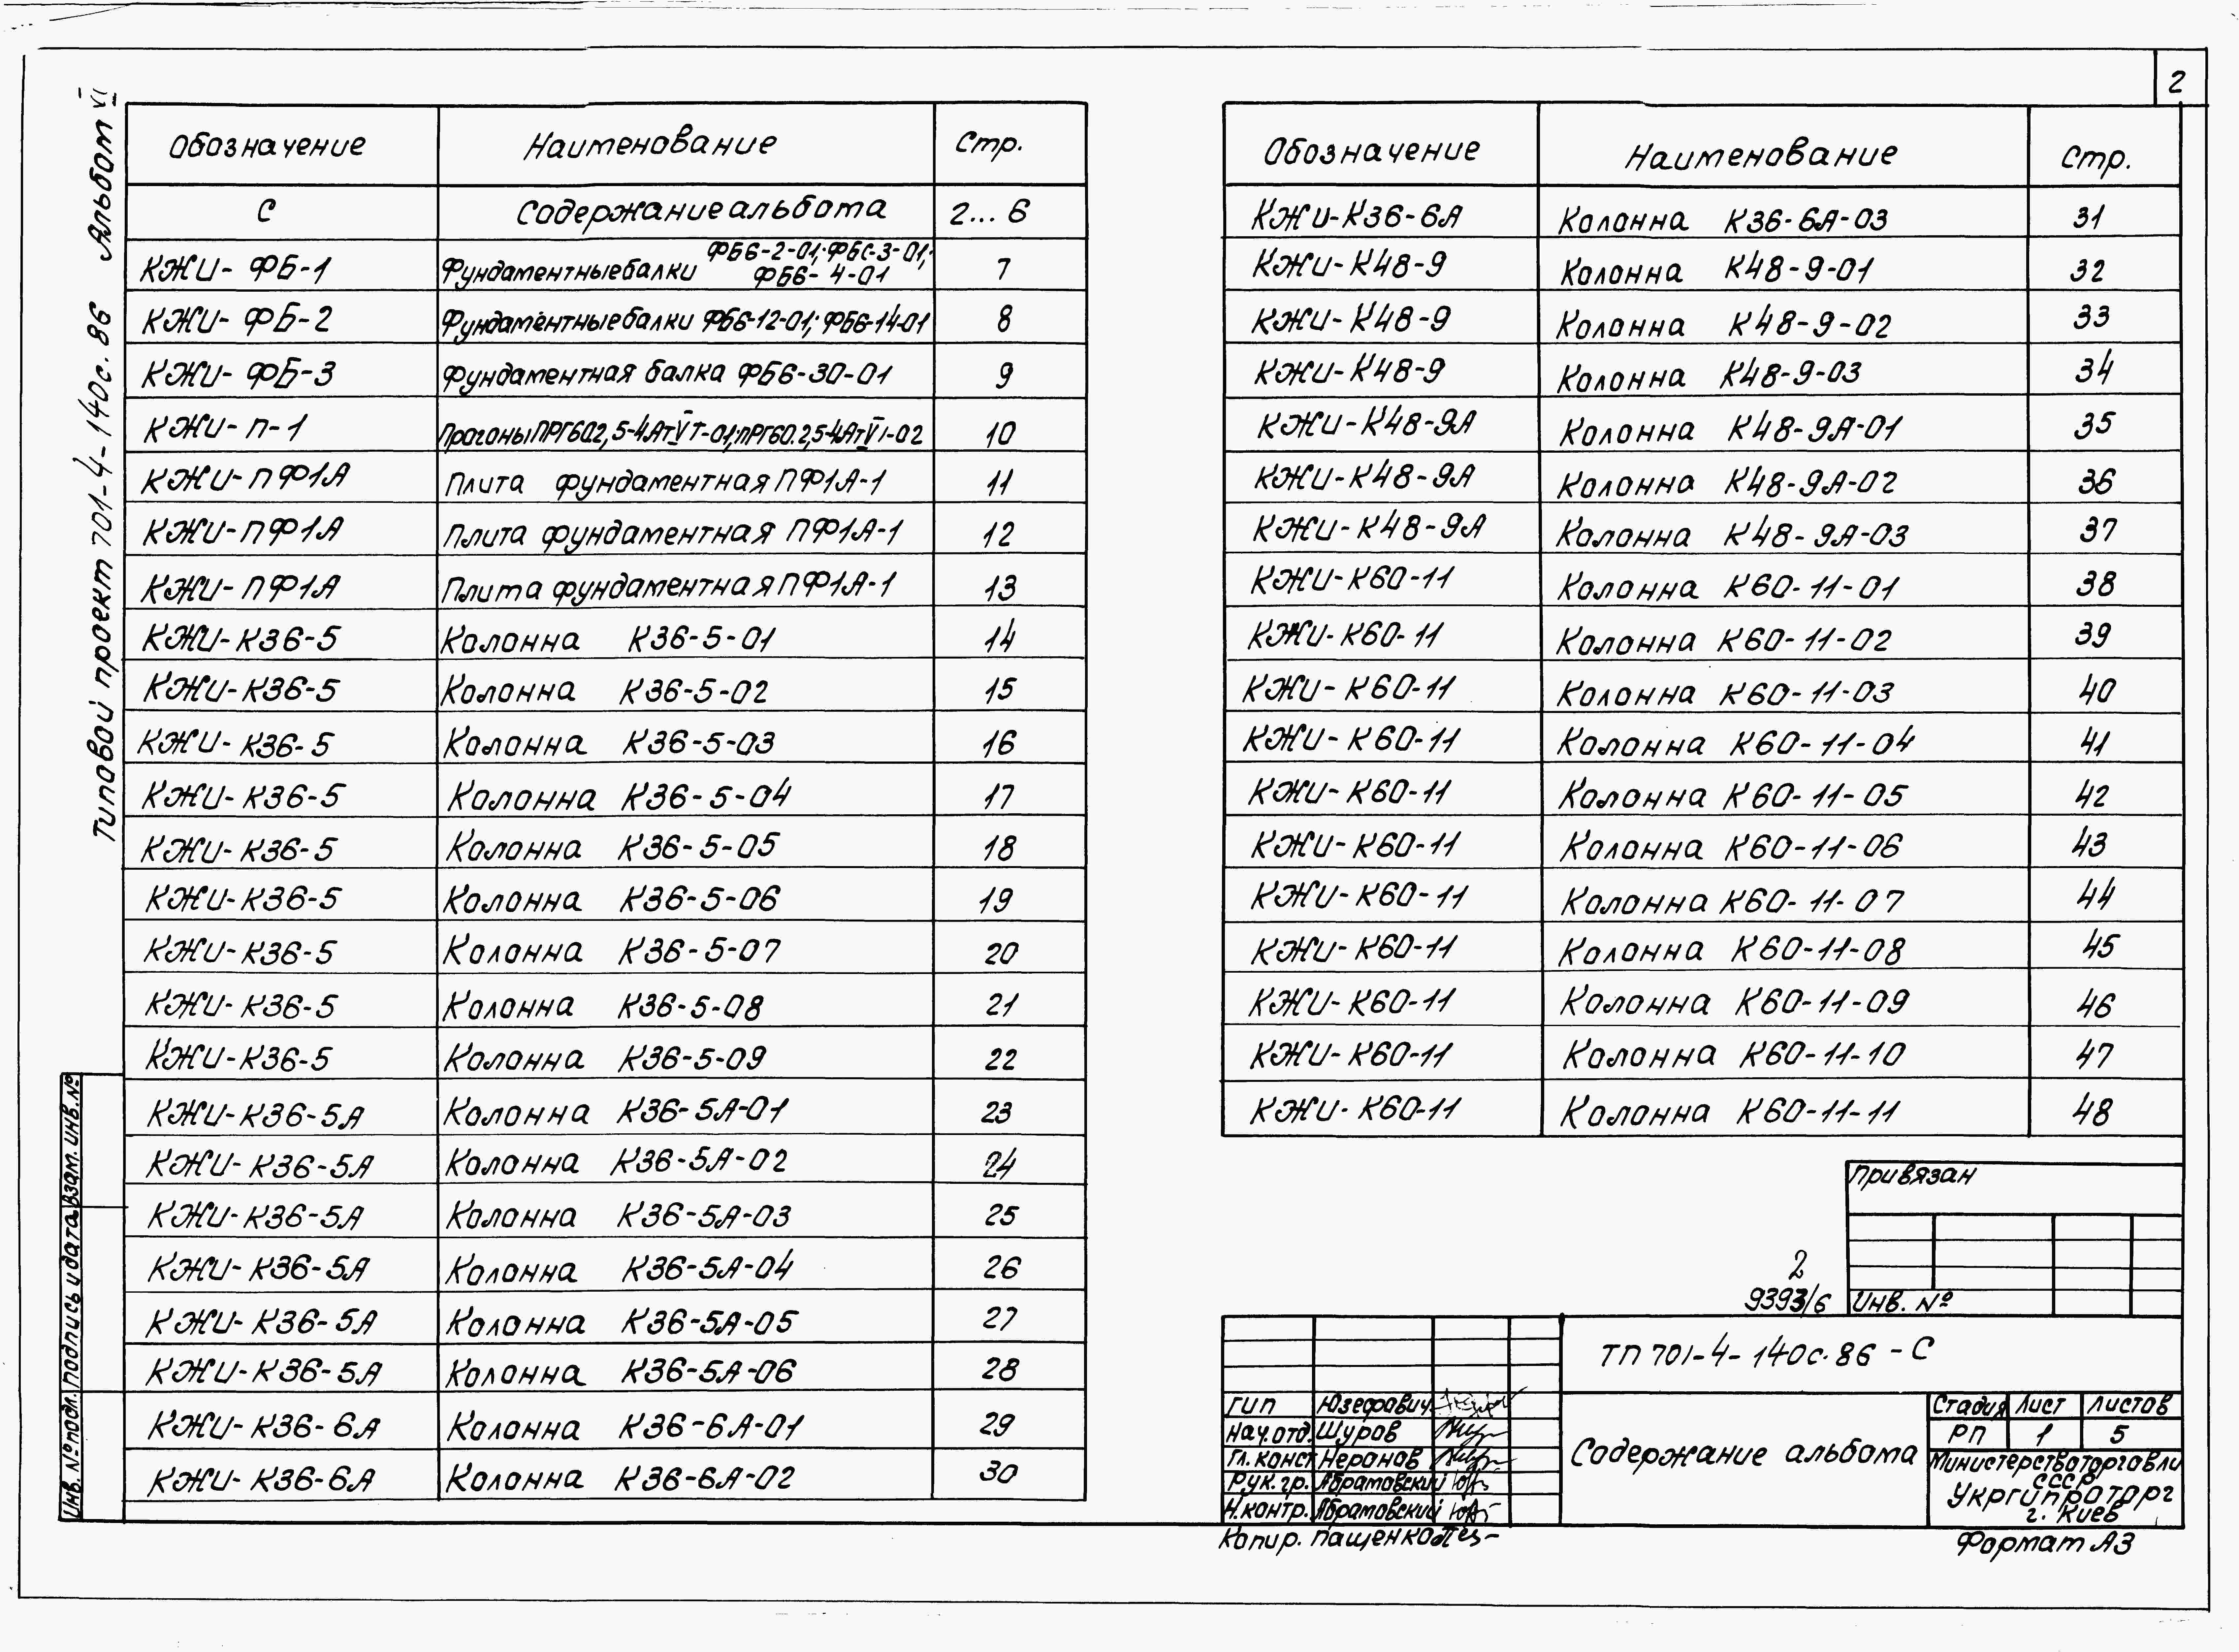 2
Типовой проект 701-4-140с.86 Альбом VI
Обозначение Наименование Стр.
С Содержание альбома 2...6
КЖИ-ФБ-1 Фундаментные балки ФБ6-2-01; ФБ6-3-01; ФБ6-4-01 7
КЖИ-ФБ-2 Фундаментные балки ФБ6-12-01; ФБ6-14-01 8
КЖИ-ФБ-3 Фундаментная балка ФБ6-30-01 9
КЖИ-П-1 Прогоны ПРГ60.2,5-4АтVТ-01; ПРГ60.2,5-4АтVТ-02 10
КЖИ-ПФ1А Плита фундаментная ПФ1А-1 11
КЖИ-ПФ1А Плита фундаментная ПФ1А-1 12
КЖИ-ПФ1А Плита фундаментная ПФ1А-1 13
КЖИ-К36-5 Колонна К36-5-01 14
КЖИ-К36-5 Колонна К36-5-02 15
КЖИ-К36-5 Колонна К36-5-03 16
КЖИ-К36-5 Колонна К36-5-04 17
КЖИ-К36-5 Колонна К36-5-05 18
КЖИ-К36-5 Колонна К36-5-06 19
КЖИ-К36-5 Колонна К36-5-07 20
КЖИ-К36-5 Колонна К36-5-08 21
КЖИ-К36-5 Колонна К36-5-09 22
КЖИ-К36-5А Колонна К36-5А-01 23
КЖИ-К36-5А Колонна К36-5А-02 24
КЖИ-К36-5А Колонна К36-5А-03 25
КЖИ-К36-5А Колонна К36-5А-04 26
КЖИ-К36-5А Колонна К36-5А-05 27
КЖИ-К36-5А Колонна К36-5А-06 28
КЖИ-К36-6А Колонна К36-6А-01 29
КЖИ-К36-6А Колонна К36-6А-02 30
Обозначение Наименование Стр.
КЖИ-К36-6А Колонна К36-6А-03 31
КЖИ-К48-9 Колонна К48-9-01 32
КЖИ-К48-9 Колонна К48-9-02 33
КЖИ-К48-9 Колонна К48-9-03 34
КЖИ-К48-9А Колонна К48-9А-01 35
КЖИ-К48-9А Колонна К48-9А-02 36
КЖИ-К48-9А Колонна К48-9А-03 37
КЖИ-К60-11 Колонна К60-11-01 38
КЖИ-К60-11 Колонна К60-11-02 39
КЖИ-К60-11 Колонна К60-11-03 40
КЖИ-К60-11 Колонна К60-11-04 41
КЖИ-К60-11 Колонна К60-11-05 42
КЖИ-К60-11 Колонна К60-11-06 43
КЖИ-К60-11 Колонна К60-11-07 44
КЖИ-К60-11 Колонна К60-11-08 45
КЖИ-К60-11 Колонна К60-11-09 46
КЖИ-К60-11 Колонна К60-11-10 47
КЖИ-К60-11 Колонна К60-11-11 48
Привязан
Инв. №
2
9393/6
ТП 701-4-140с.86 -С
ГИП Юзефович
Нач.отд. Шуров
Гл.конст. Неронов
Рук.гр. Абрамовский
Н.контр. Абрамовский
Содержание альбома
Стадия Лист Листов
РП 1 5
Министерство торговли
СССР
Укргипроторг
г. Киев
Копир. Пащенко
Формат А3
Инв. № подл. Подпись и дата Взам. инв. №